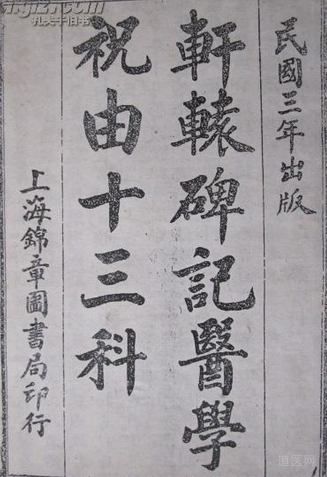 民國三年出版
軒轅碑記醫學
祝由十三科
上海錦章圖書局印行
孔夫子旧书网
道医网